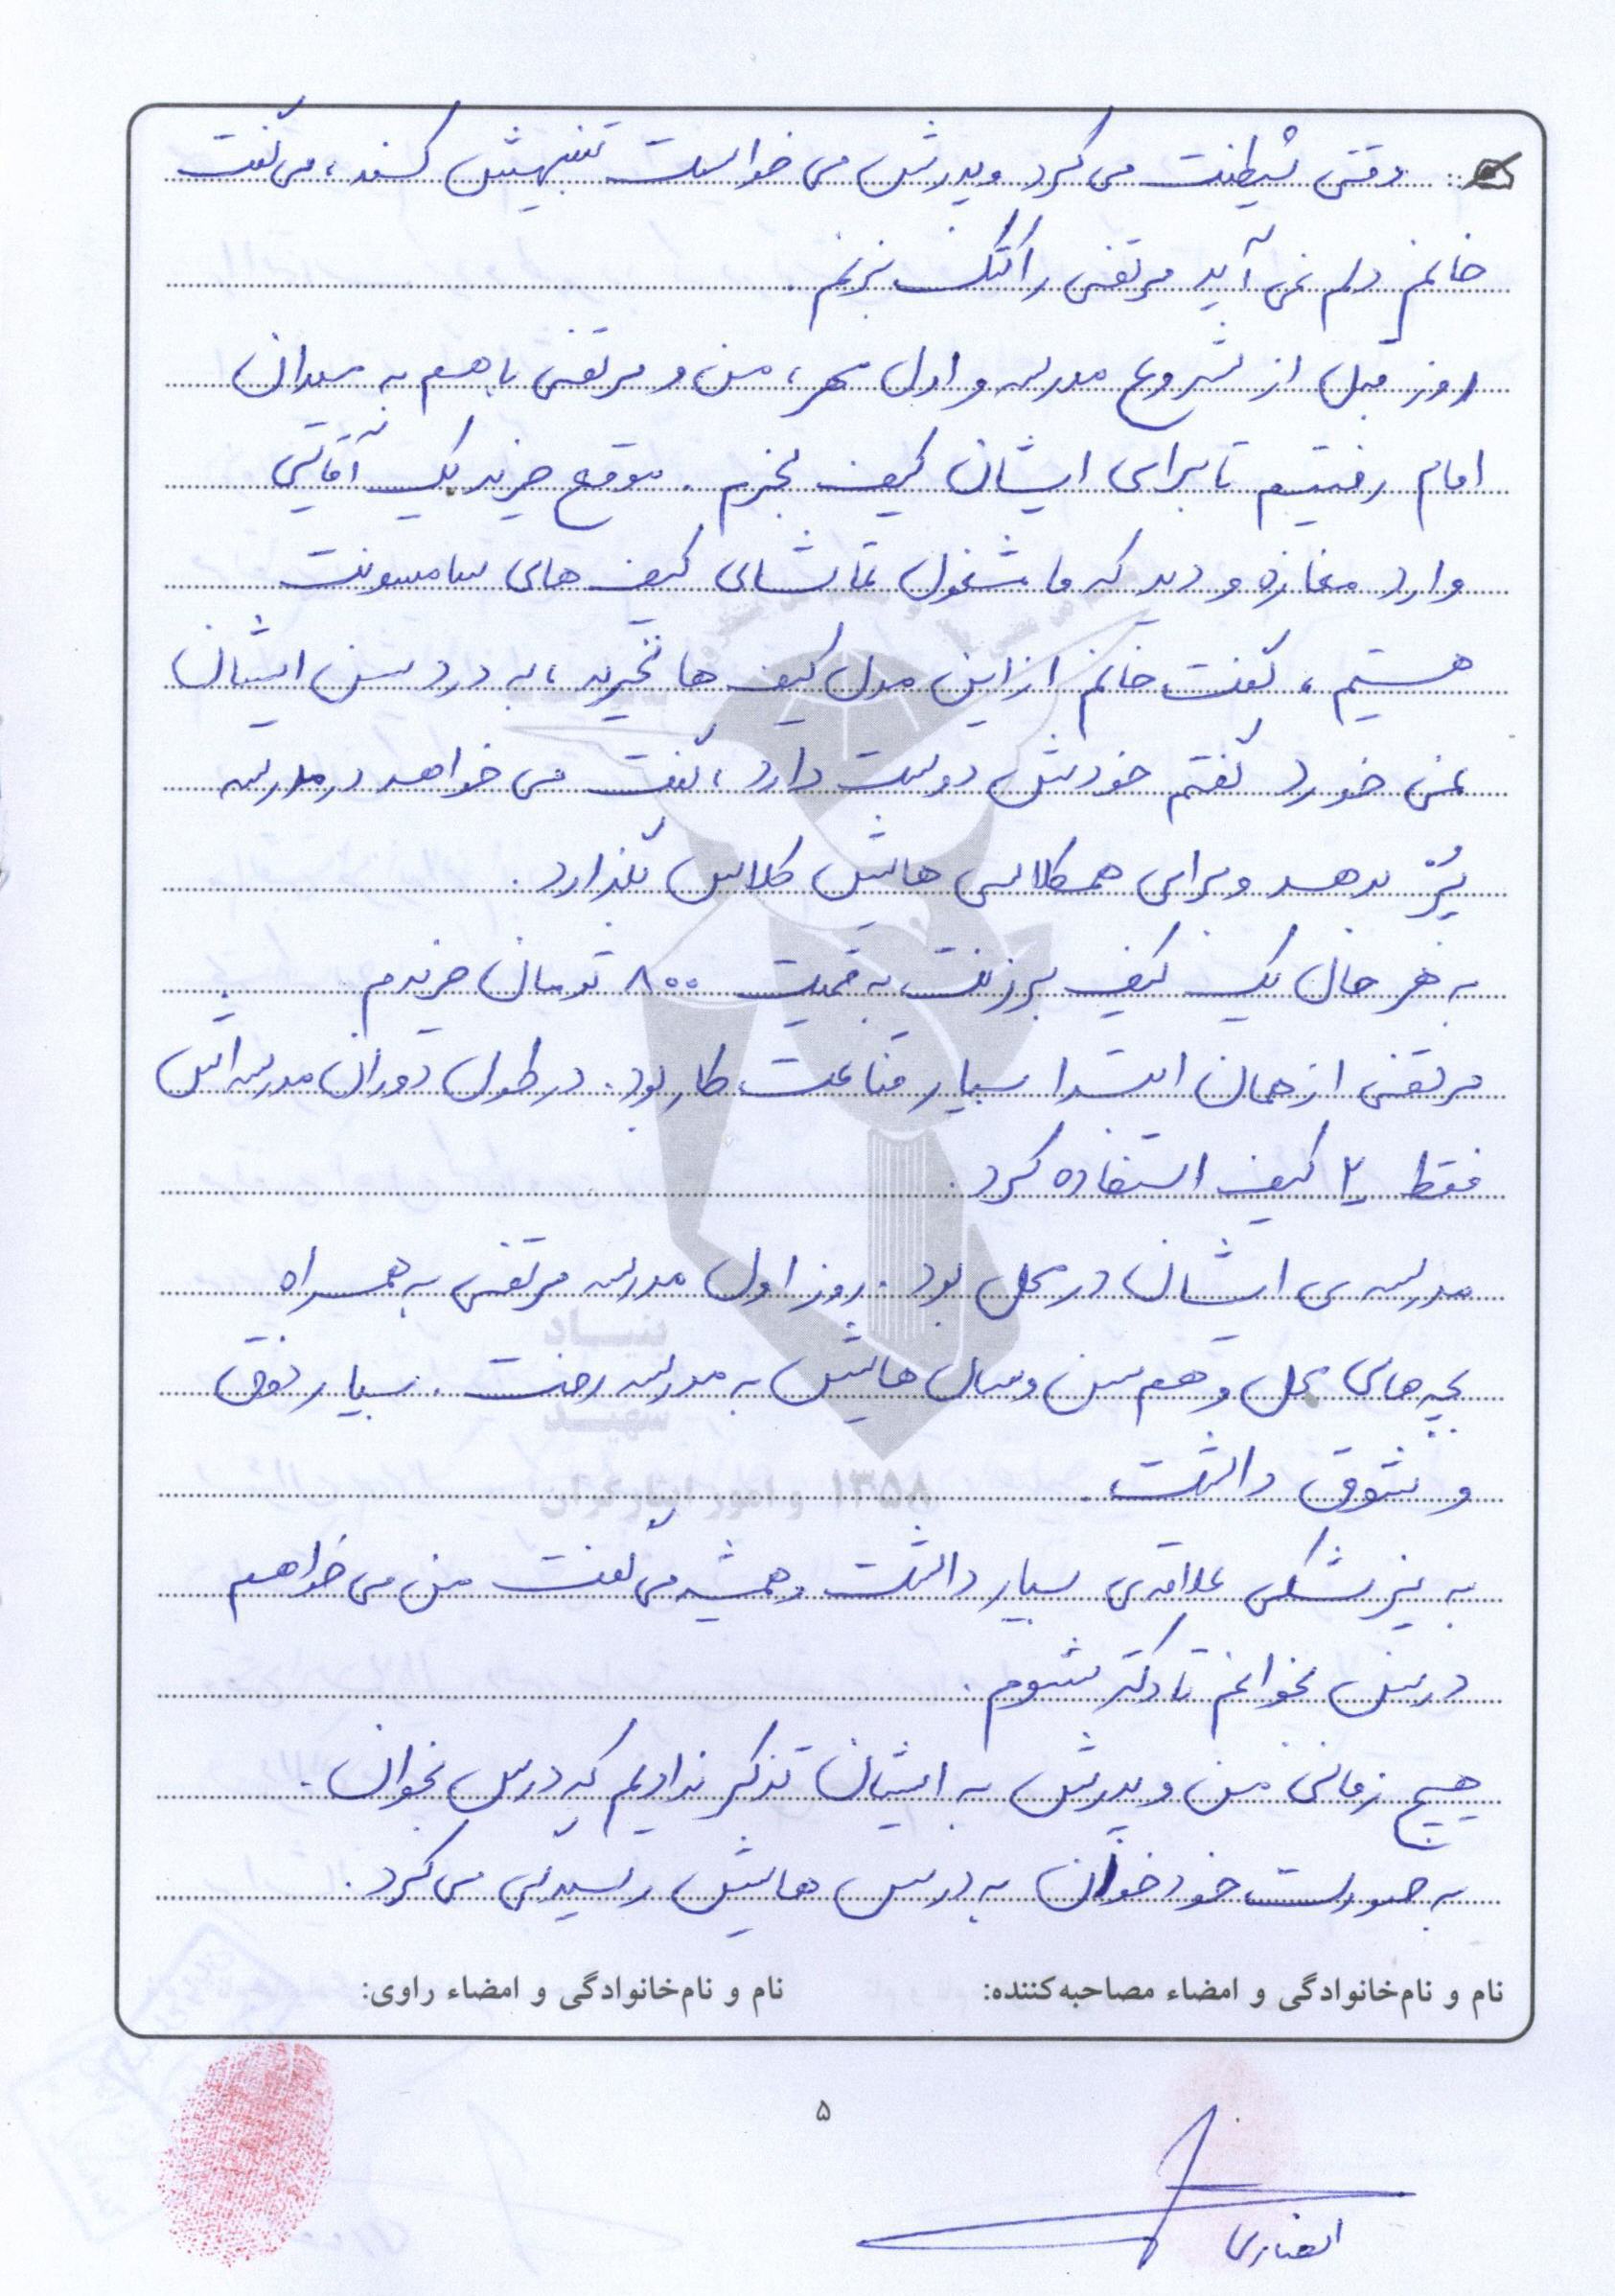 وقتی شیطنت می کرد و پدرش می خواست تنبیهش کند، می گفت
خانم دلم نمی آید مرتضی را کتک بزنم.
روز قبل از شروع مدرسه و اول مهر، من و مرتضی با هم به میدان
امام رفتیم تا برای ایشان کیف بخرم. موقع خرید یک آقائی
وارد مغازه و دید که ما مشغول تماشای کیف های سامسونت
هستیم، گفت خانم از این مدل کیف ها نخرید، به درد سن ایشان
نمی خورد گفتم خودش دوست دارد، گفت می خواهد در مدرسه
پُز بدهد و برای همکلاسی هایش کلاس بگذارد.
به هر حال یک کیف برزنت به قیمت ۸۰۰ تومان خریدم.
مرتضی از همان ابتدا بسیار قناعت کار بود. در طول دوران مدرسه اش
فقط ۲ کیف استفاده کرد.
مدرسه ی ایشان در محل بود. روز اول مدرسه مرتضی به همراه
بچه های محل و هم سن و سال هایش به مدرسه رفت. بسیار ذوق
و شوق داشت.
به پزشکی علاقه ی بسیار داشت و همیشه می گفت من می خواهم
درس بخوانم تا دکتر شوم.
هیچ زمانی من و پدرش به ایشان تذکر ندادیم که درس بخوان.
به صورت خودخوان به درس هایش رسیدگی می کرد.
نام و نام‌خانوادگی و امضاء مصاحبه‌کننده: نام و نام‌خانوادگی و امضاء راوی:
۵
انصاری
بنیاد
شهید
و امور ایثارگران ۱۳۵۸